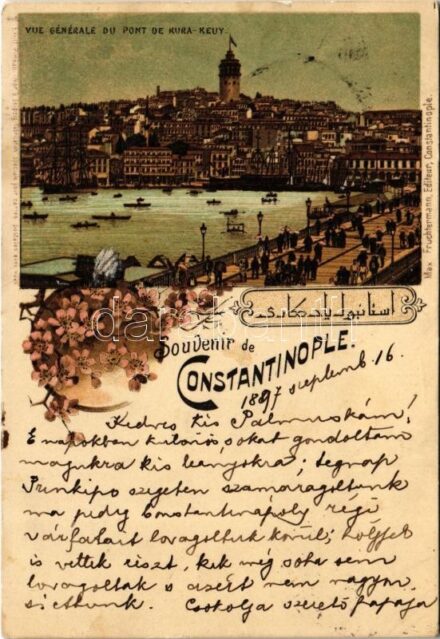 VUE GÉNÉRALE DU PONT DE KURA-KEUY
Max Fruchtermann, Editeur, Constantinople.
استانبول يادكارى
Souvenir de
CONSTANTINOPLE.
1897 septemb. 16.
Kedves kis Palmuskám!
E napokban sokat gondoltam
magukra kis leányokra; tegnap
Prinkipo szigeten szamaragoltunk
ma pedig Constantinápoly régi
várfalait lovagoltuk körül; hölgyek
is vettek részt, kik még soha sem
lovagoltak s azért nem nagyon
siettünk. Csokolja szerető papája